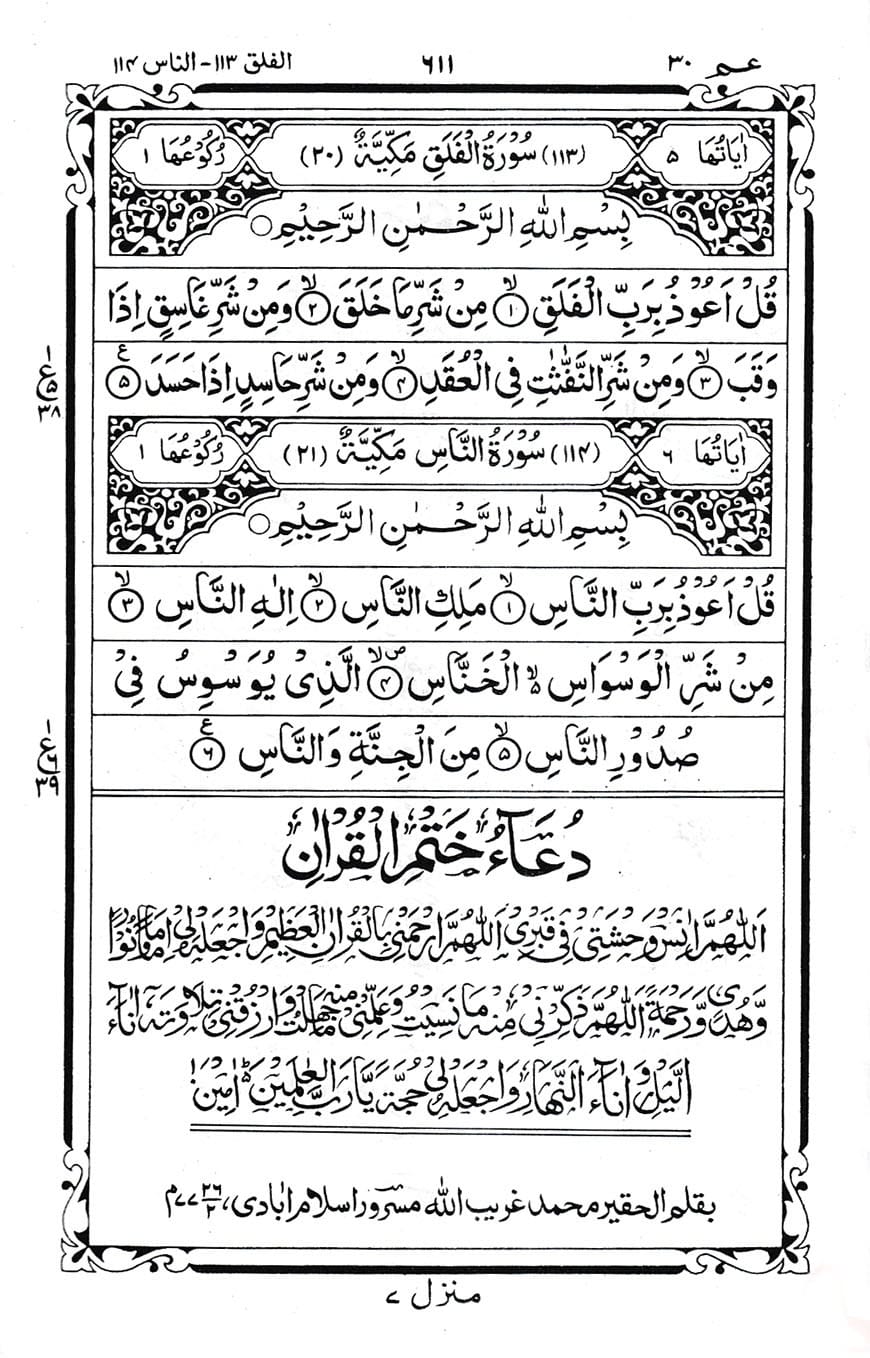 عـــم ٣٠
٦١١
الفلق ١١٣ - الناس ١١۴
اٰيَاتُهَا ٥
(١١٣) سُوْرَةُ الْفَلَقِ مَكِّيَّةٌ (٢٠)
رُكُوْعُهَا ١
بِسْمِ اللّٰهِ الرَّحْمٰنِ الرَّحِيْمِ ○
قُلْ اَعُوْذُ بِرَبِّ الْفَلَقِ ۙ﴿١﴾ مِنْ شَرِّ مَا خَلَقَ ۙ﴿٢﴾ وَمِنْ شَرِّ غَاسِقٍ اِذَا
وَقَبَ ۙ﴿٣﴾ وَمِنْ شَرِّ النَّفّٰثٰتِ فِى الْعُقَدِ ۙ﴿۴﴾ وَمِنْ شَرِّ حَاسِدٍ اِذَا حَسَدَ ﴿٥﴾ ع
١
ع ٥
٣٨
اٰيَاتُهَا ٦
(١١۴) سُوْرَةُ النَّاسِ مَكِّيَّةٌ (٢١)
رُكُوْعُهَا ١
بِسْمِ اللّٰهِ الرَّحْمٰنِ الرَّحِيْمِ ○
قُلْ اَعُوْذُ بِرَبِّ النَّاسِ ۙ﴿١﴾ مَلِكِ النَّاسِ ۙ﴿٢﴾ اِلٰهِ النَّاسِ ۙ﴿٣﴾
مِنْ شَرِّ الْوَسْوَاسِ ۙ۬ الْخَنَّاسِ ۙ﴿۴﴾ ص الَّذِىْ يُوَسْوِسُ فِىْ
صُدُوْرِ النَّاسِ ۙ﴿٥﴾ مِنَ الْجِنَّةِ وَالنَّاسِ ﴿٦﴾ ع
١
ع ٦
٣٩
دُعَآءُ خَتْمِ الْقُرْاٰنِ
اَللّٰهُمَّ اٰنِسْ وَحْشَتِىْ فِىْ قَبْرِىْ اَللّٰهُمَّ ارْحَمْنِىْ بِالْقُرْاٰنِ الْعَظِيْمِ وَاجْعَلْهُ لِىْ اِمَامًا وَّنُوْرًا
وَّهُدًى وَّرَحْمَةً اَللّٰهُمَّ ذَكِّرْنِىْ مِنْهُ مَا نَسِيْتُ وَعَلِّمْنِىْ مِنْهُ مَا جَهِلْتُ وَارْزُقْنِىْ تِلَاوَتَهٗ اٰنَآءَ
الَّيْلِ وَاٰنَآءَ النَّهَارِ وَاجْعَلْهُ لِىْ حُجَّةً يَّا رَبَّ الْعٰلَمِيْنَ ؕ اٰمِيْنَ
بقلم الحقیر محمد غریب اللہ مسرور اسلام اٰبادی، ٢٦/٢ ۷۷م
منزل ۷